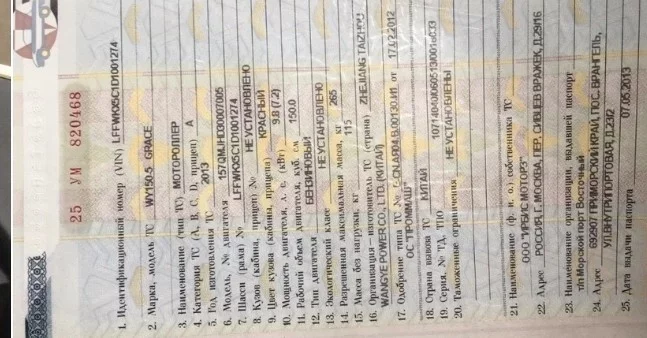 25 УМ 820468
1. Идентификационный номер (VIN) LFFWKX5C1D1001274
2. Марка, модель ТС WY150-5 GRACE
3. Наименование (тип ТС) МОТОРОЛЛЕР
4. Категория ТС (A, B, C, D, прицеп) A
5. Год изготовления ТС 2013
6. Модель, № двигателя 157QMJHD30007005
7. Шасси (рама) № LFFWKX5C1D1001274
8. Кузов (кабина, прицеп) № НЕ УСТАНОВЛЕНО
9. Цвет кузова (кабины, прицепа) КРАСНЫЙ
10. Мощность двигателя, л. с. (кВт) 9.8 (7.2)
11. Рабочий объем двигателя, куб. см 150.0
12. Тип двигателя БЕНЗИНОВЫЙ
13. Экологический класс НЕ УСТАНОВЛЕНО
14. Разрешенная максимальная масса, кг 265
15. Масса без нагрузки, кг 115
16. Организация - изготовитель ТС (страна) ZHEJIANG TAIZHOU
WANGYE POWER CO., LTD. (КИТАЙ)
17. Одобрение типа ТС № от 17.12.2012
ОС "ПРОММАШ"
18. Страна вывоза ТС КИТАЙ
19. Серия, № ТД, ТПО
20. Таможенные ограничения НЕ УСТАНОВЛЕНЫ
21. Наименование (ф. и. о.) собственника ТС
ООО "ИРБИС МОТОРЗ"
22. Адрес РОССИЯ, Г. МОСКВА, ПЕР. СИВЦЕВ ВРАЖЕК, Д.29/16
23. Наименование организации, выдавшей паспорт
т/п Морской порт Восточный
24. Адрес 692907 ПРИМОРСКИЙ КРАЙ, ПОС. ВРАНГЕЛЬ,
УЛ.ВНУТРИПОРТОВАЯ, Д.
25. Дата выдачи паспорта 07.05.2013